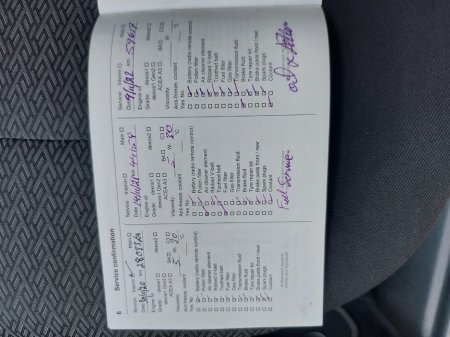 6
Service confirmation
Service Interim Main
Date km 28099
Engine oil
Grade: dexos1 dexos2
dexos1 Gen2
ACEA A3 B4 C3
Viscosity W- 30
Anti-freeze coolant °C
Yes No
Battery (radio remote control)
Pollen filter
Air cleaner element
Ripped V-belt
Toothed belt
Fuel filter
Gas filter
Transmission fluid
Brake fluid
Tyre repair kit
Brake pads front / rear
Spark plugs
Coolant
Service Interim Main
Date km
Engine oil
Grade: dexos1 dexos2
dexos1 Gen2
ACEA A3 B4 C3
Viscosity W- 30
Anti-freeze coolant °C
Yes No
Battery (radio remote control)
Pollen filter
Air cleaner element
Ripped V-belt
Toothed belt
Fuel filter
Gas filter
Transmission fluid
Brake fluid
Tyre repair kit
Brake pads front / rear
Spark plugs
Coolant
Full Service
Service Interim Main
Date km 59618
Engine oil
Grade: dexos1 dexos2
dexos1 Gen2
ACEA A3 B4 C3
Viscosity W-
Anti-freeze coolant °C
Yes No
Battery (radio remote control)
Pollen filter
Air cleaner element
Ripped V-belt
Toothed belt
Fuel filter
Gas filter
Transmission fluid
Brake fluid
Tyre repair kit
Brake pads front / rear
Spark plugs
Coolant